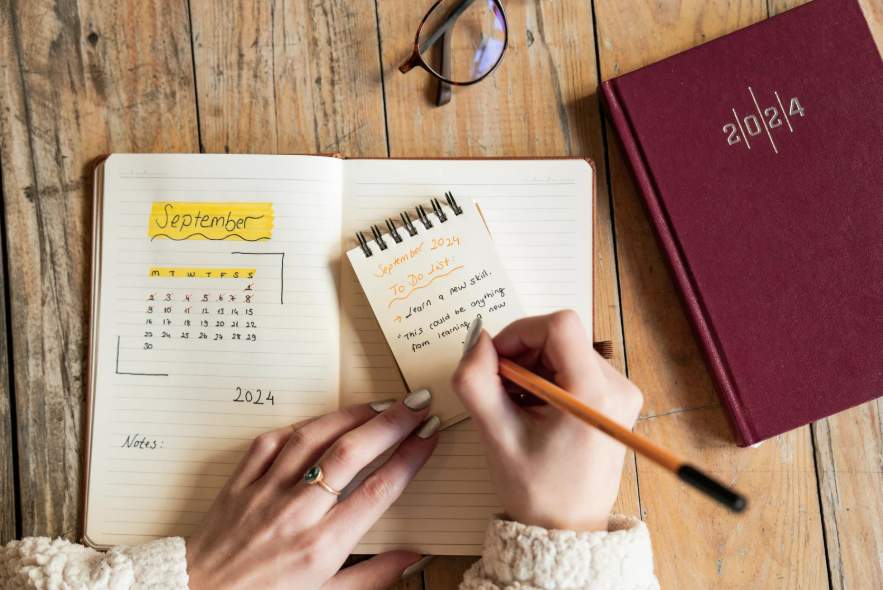 September
M T W T F S S
1
2 3 4 5 6 7 8
9 10 11 12 13 14 15
16 17 18 19 20 21 22
23 24 25 26 27 28 29
30
2024
Notes:
September 2024
To Do list:
→ Learn a new skill.
"This could be anything
from learning a new
2024